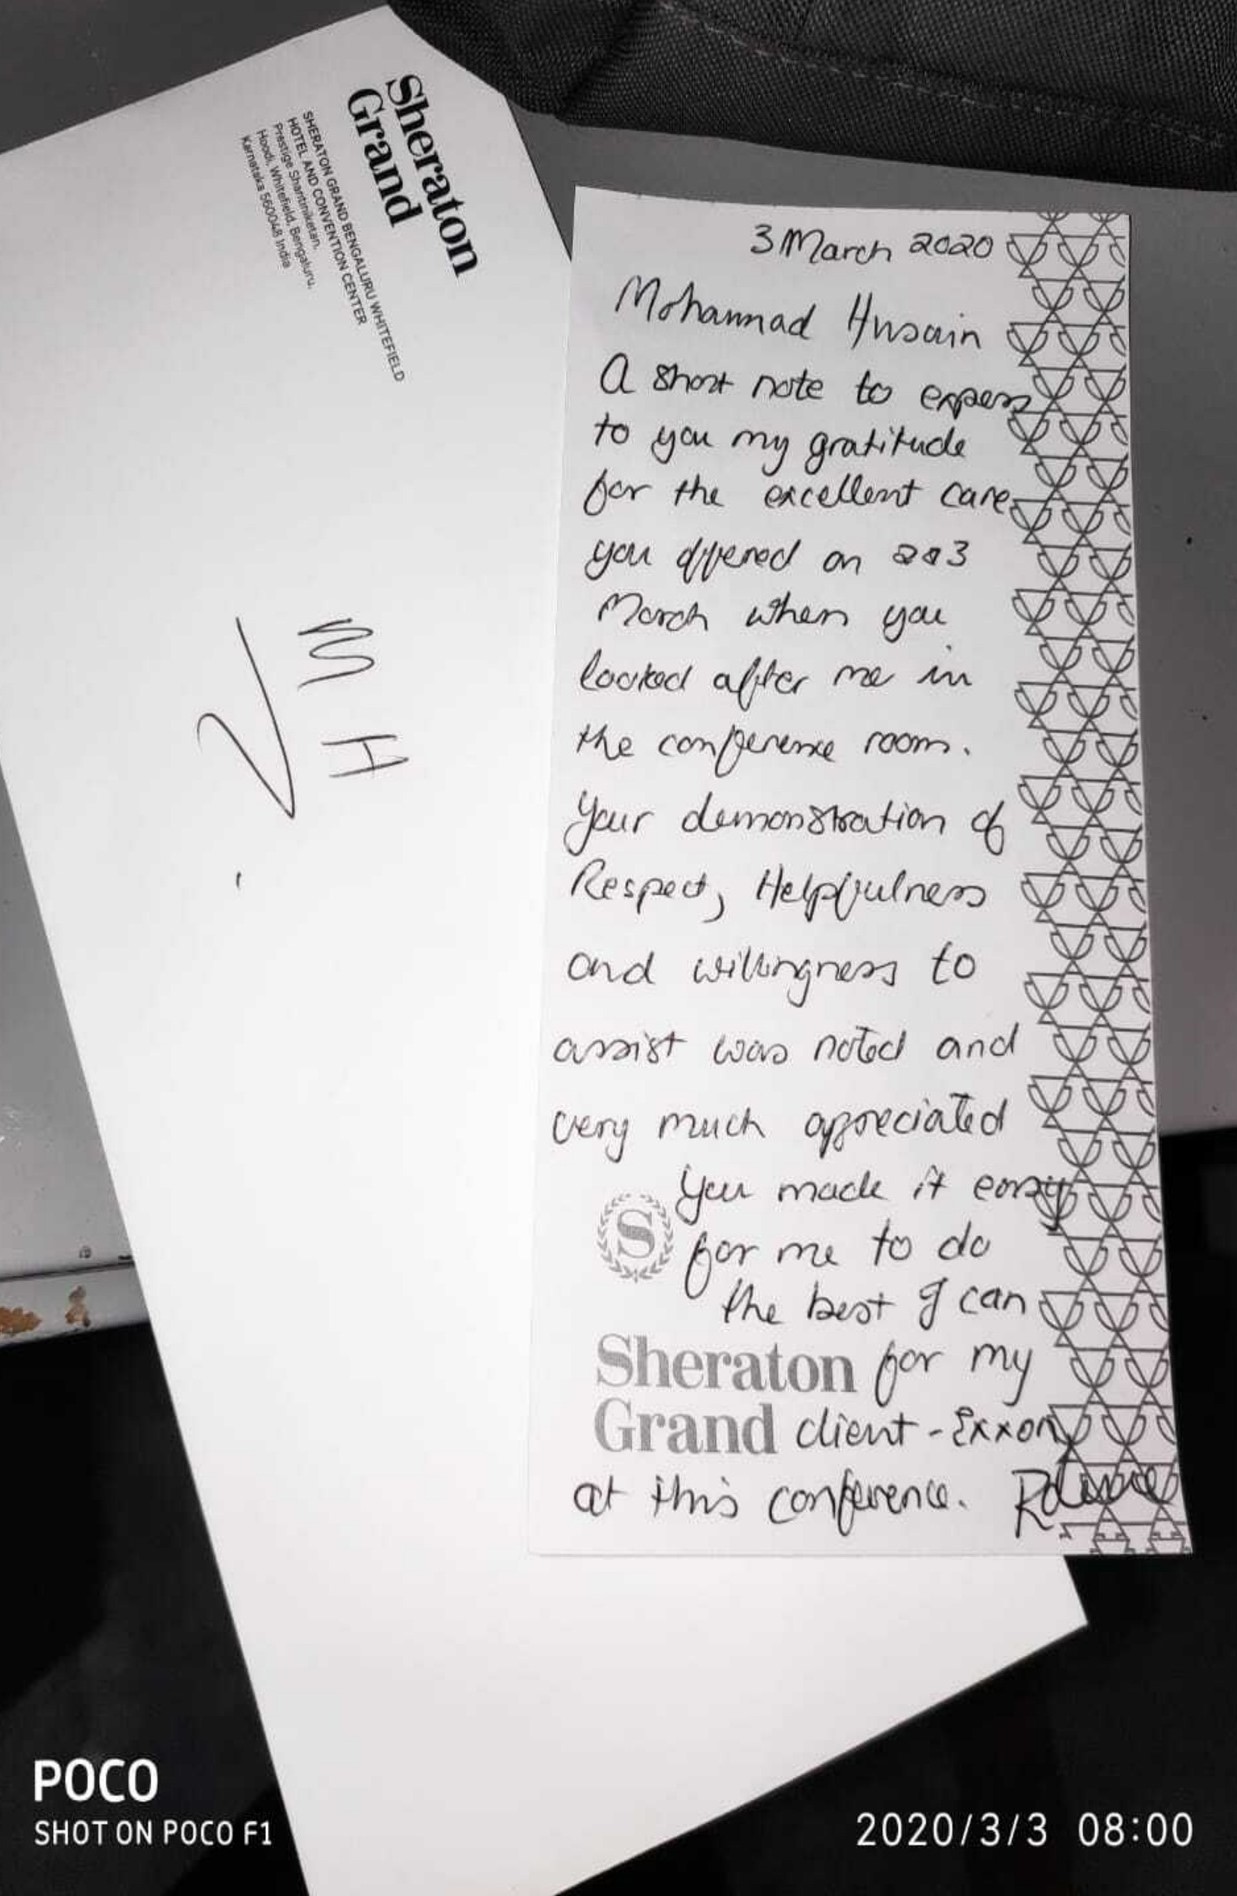 Sheraton
Grand
SHERATON GRAND BENGALURU WHITEFIELD
HOTEL AND CONVENTION CENTER
Prestige Shantiniketan,
Hoodi, Whitefield, Bengaluru,
Karnataka 560048 India
M H
3 March 2020
Mohammad Husain
A short note to express
to you my gratitude
for the excellent care
you offered on 2&3
March when you
looked after me in
the conference room.
Your demonstration of
Respect, Helpfulness
and willingness to
assist was noted and
very much appreciated
You made it easy
S for me to do
the best I can
Sheraton for my
Grand client - Exxon
at this conference.
POCO
SHOT ON POCO F1
2020/3/3 08:00